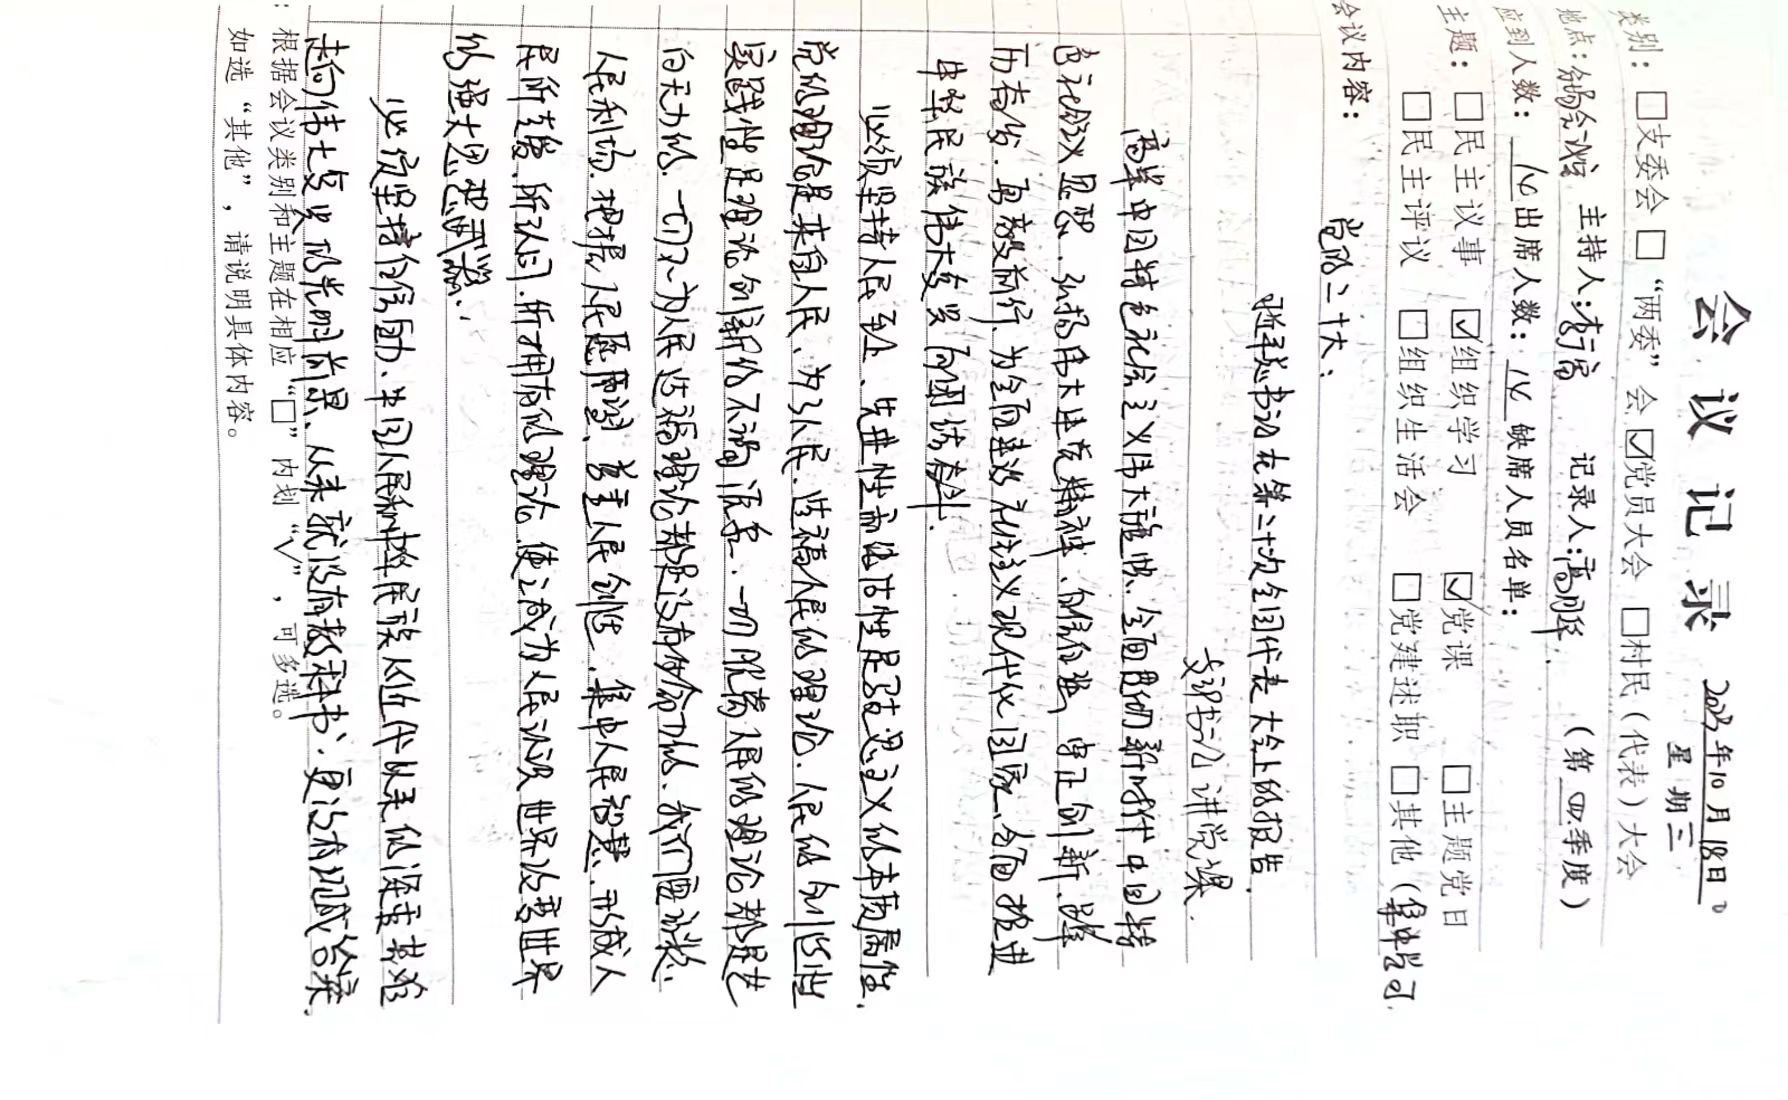 会议记录 2023年10月18日
星期三
类别：□支委会 □“两委”会 ☑党员大会 □村民（代表）大会
地点：会议室 主持人：李 记录人：高 （第四季度）
应到人数：14 出席人数：14 缺席人员名单：
主题：□民主议事 ☑组织学习 ☑党课 □主题党日
□民主评议 □组织生活会 □党建述职 □其他（集中学习
会议内容：
党的二十大：
总书记在第二十次全国代表大会上的报告.
支部书记讲党课.
高举中国特色社会主义伟大旗帜、全面贯彻新时代中国特
色社会主义思想、弘扬伟大建党精神、自信自强、守正创新、踔
厉奋发、勇毅前行、为全面建设社会主义现代化国家、全面推进
中华民族伟大复兴而团结奋斗.
必须坚持人民至上、先进性而人民性是马克思主义的本质属性、
党的理论是来自人民、为了人民、造福人民的理论、人民的创造性
实践性是理论创新的不竭源泉、一切脱离人民的理论都是苍
白无力的、一切不为人民造福理论都是没有生命力的、我们要站稳
人民立场、把握人民愿望、尊重人民创造、集中人民智慧、形成人
民所喜爱、所认同、所拥有的理论、使之成为人民认识世界改变世界
的强大思想武器.
必须坚持自信自立、中国人民和中华民族从近代以来的深重苦难
走向伟大复兴的光明前景、从来就没有教科书、更没有现成答案.
：根据会议类别和主题在相应“□”内划“√”，可多选。
如选“其他”，请说明具体内容。